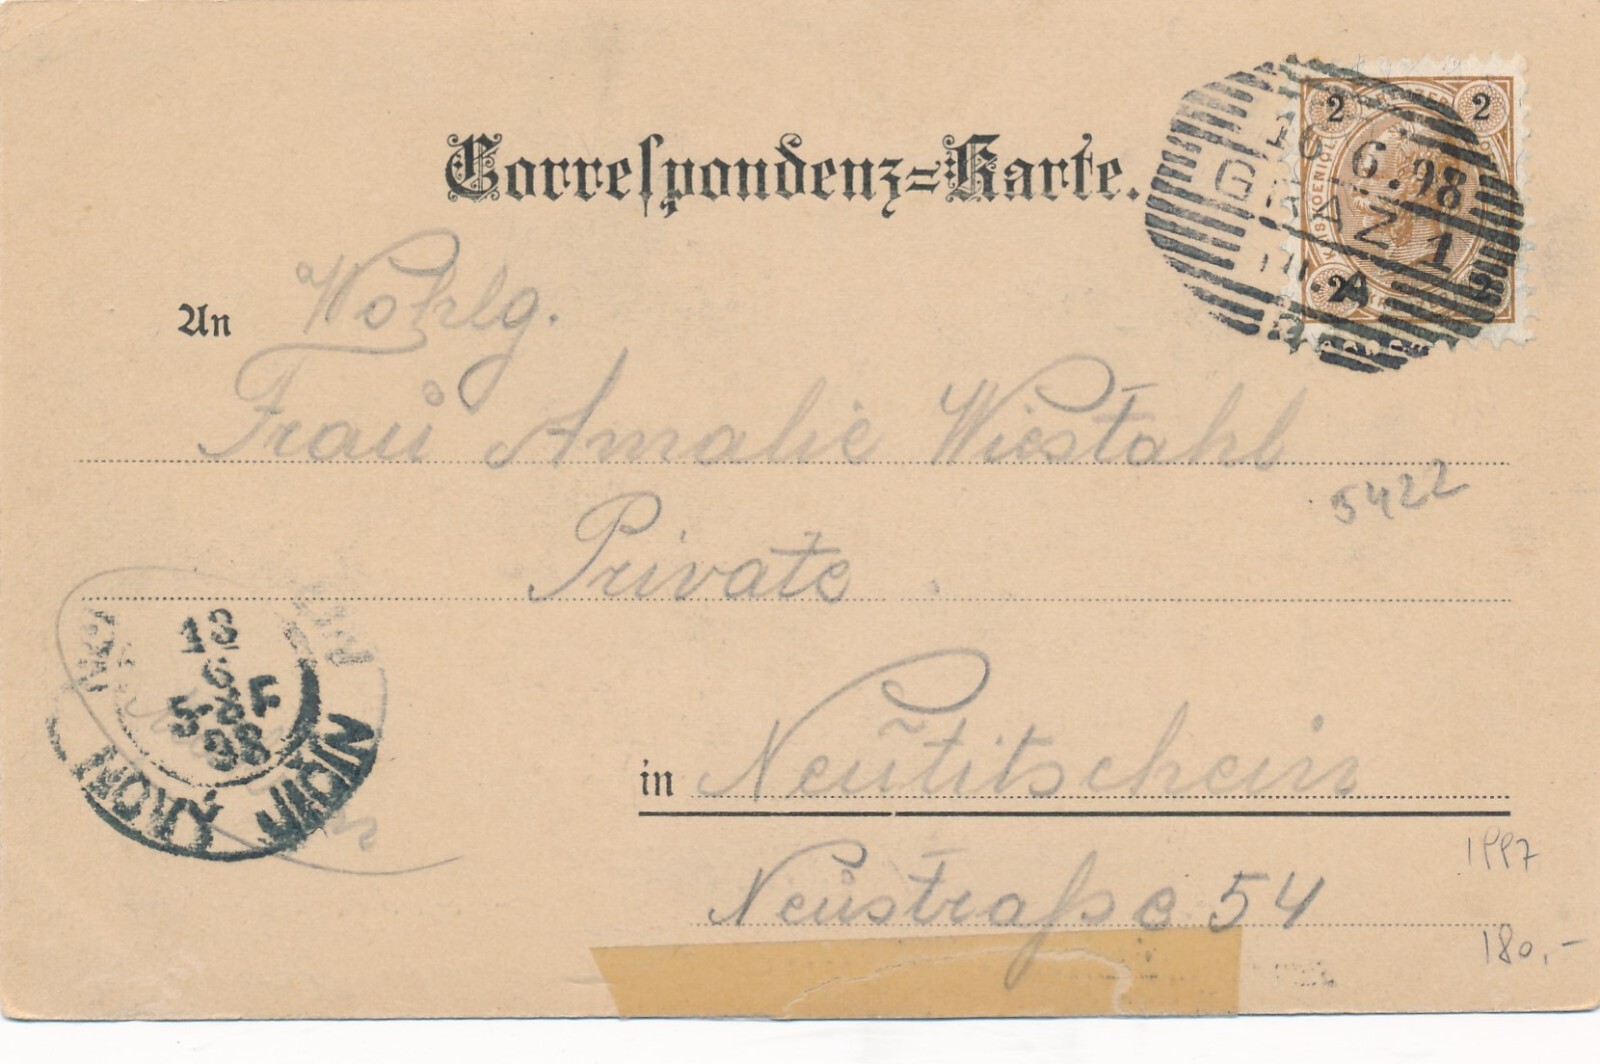 Correspondenz=Karte.
2 2
6.98
1
An Wohlg.
Frau Amalie Wiestahl
5422
Private
13
6
5-8F
98
NOVÝ JIČÍN
in Neutitschein
1997
Neustraße 54
180,-